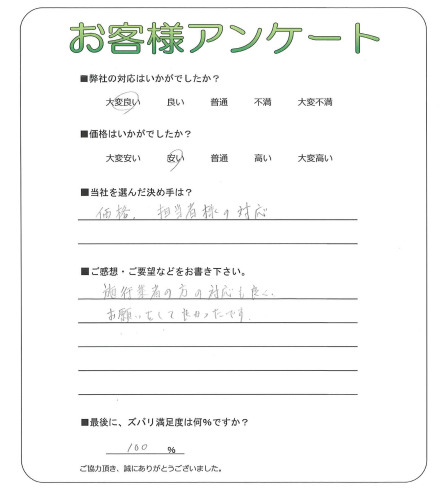 お客様アンケート
■弊社の対応はいかがでしたか？
大変良い 良い 普通 不満 大変不満
■価格はいかがでしたか？
大変安い 安い 普通 高い 大変高い
■当社を選んだ決め手は？
価格、担当者様の対応
■ご感想・ご要望などをお書き下さい。
施行業者の方の対応も良い、
お願いをして良かったです。
■最後に、ズバリ満足度は何%ですか？
100 %
ご協力頂き、誠にありがとうございました。